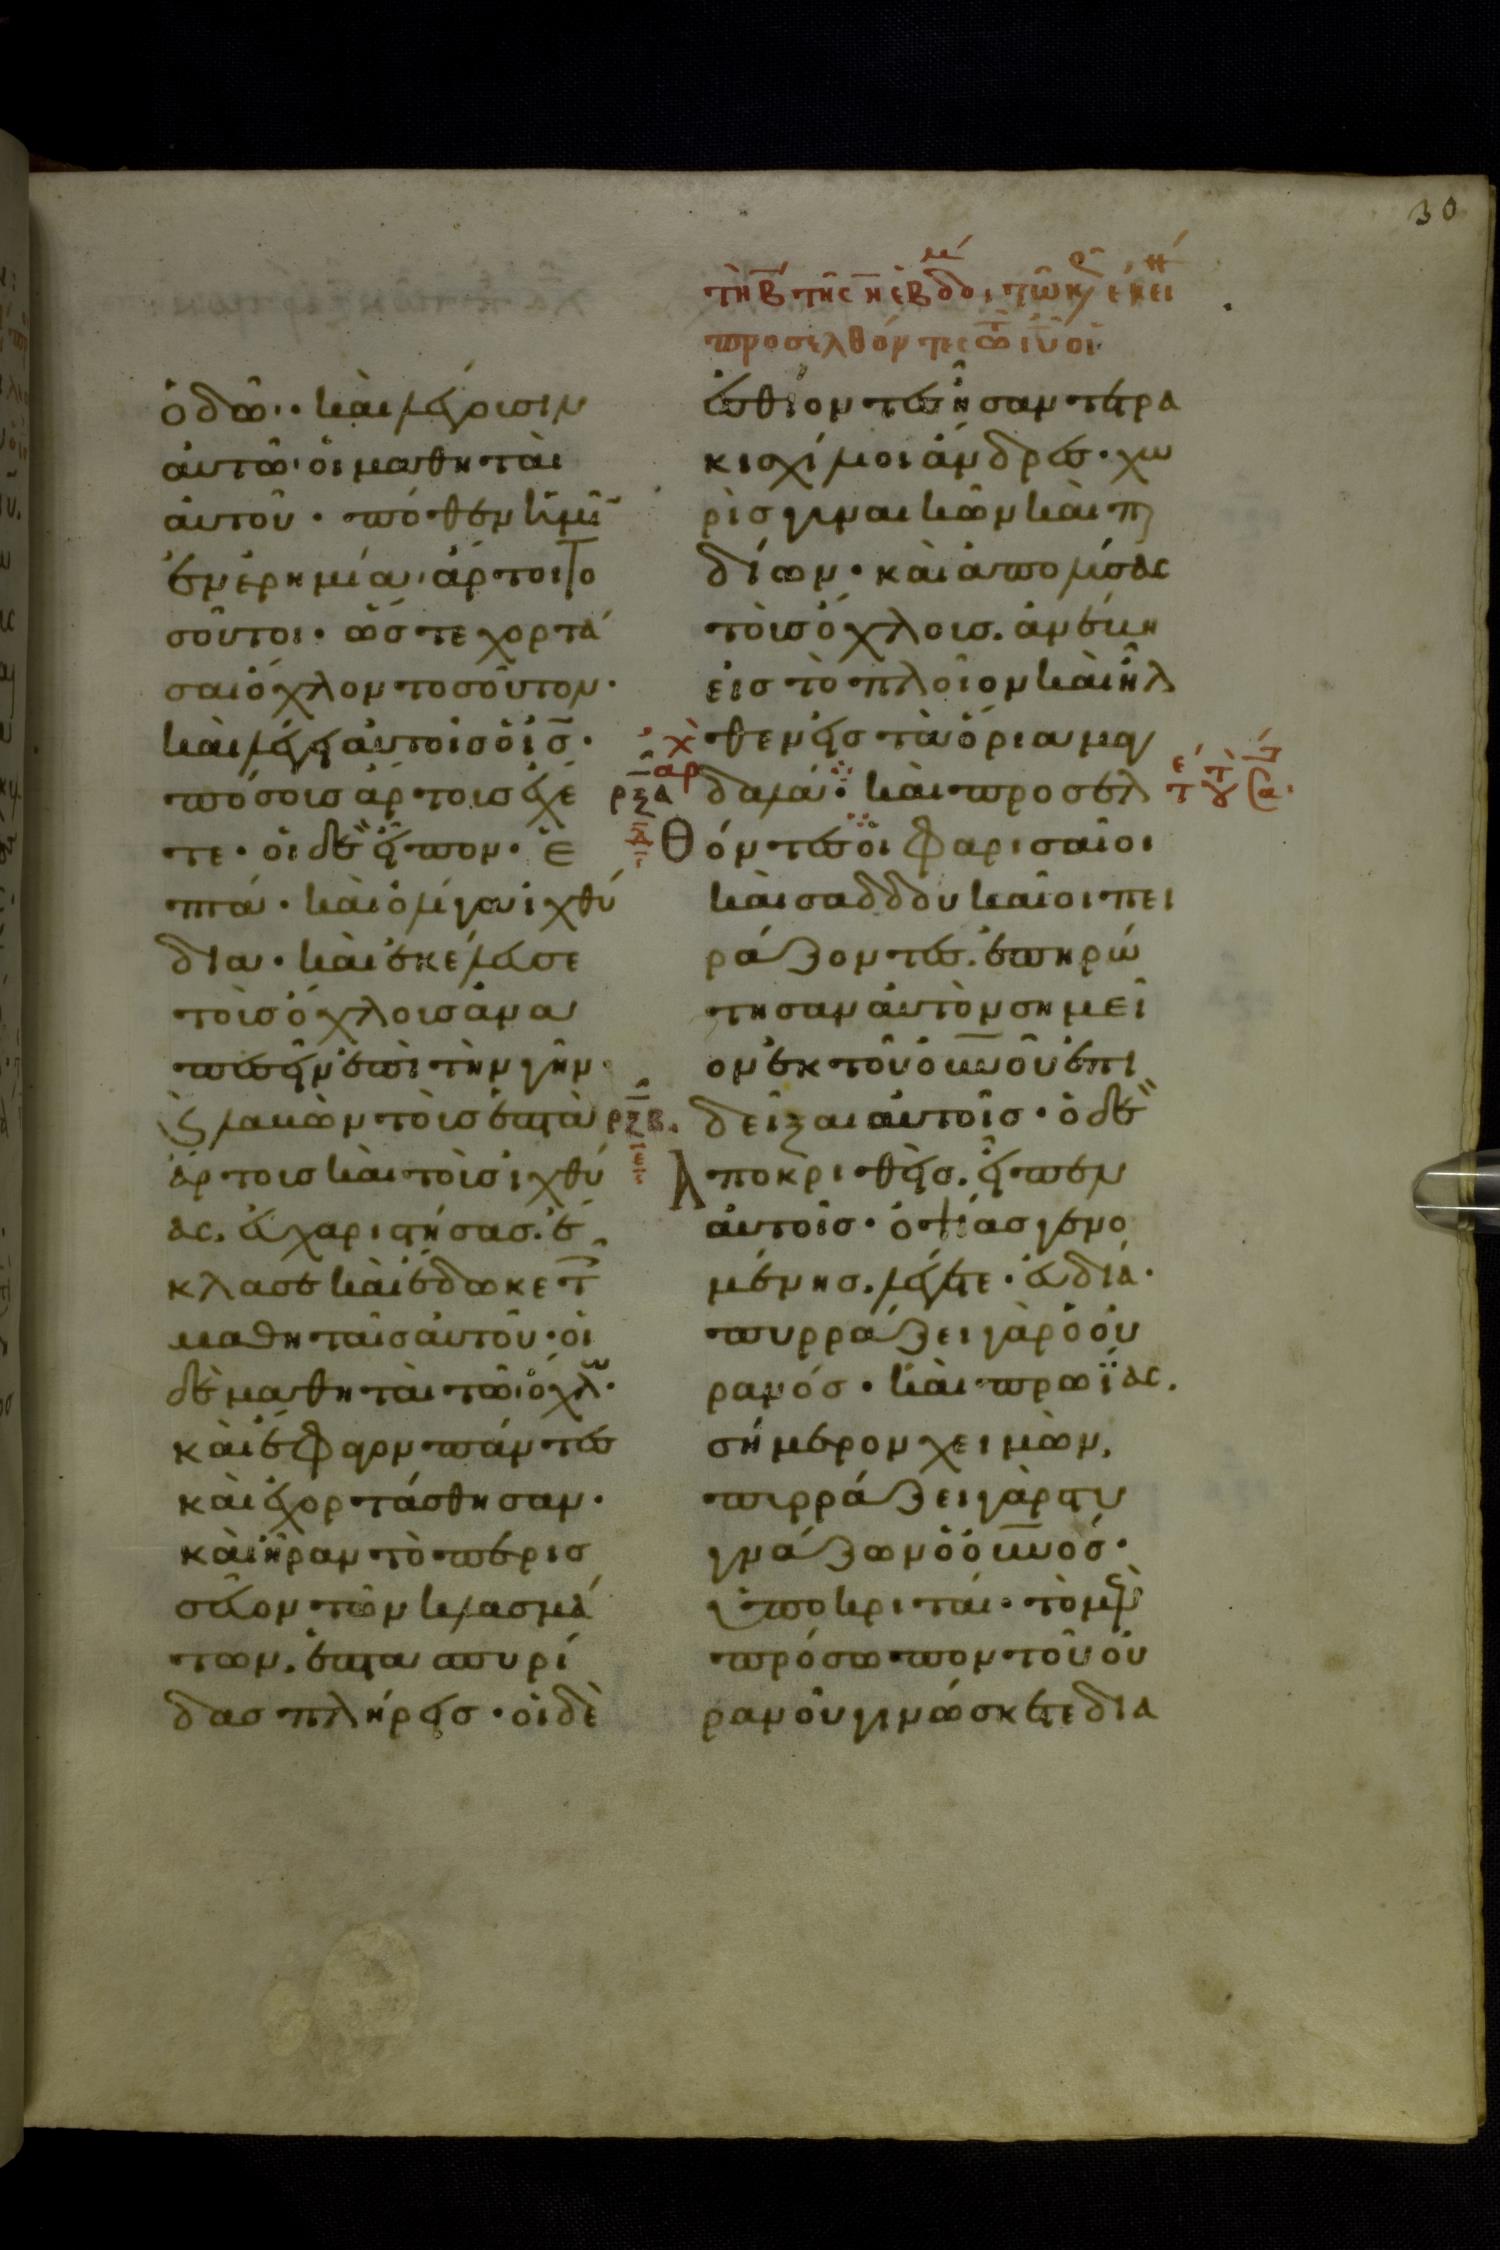 30
τῆ β τῆς η ἑβδο
προσελθόντες τῶ ιυ οἱ
ὁδῶ· καὶ λέγουσιν
αὐτῶ οἱ μαθηταὶ
αὐτοῦ· πόθεν ἡμῖ
ἐν ἐρημία ἄρτοι το
σοῦτοι· ὥστε χορτά
σαι ὄχλον τοσοῦτον·
καὶ λέγει αὐτοῖς ὁ ις·
πόσοις ἄρτοις ἔχε
τε· οἱ δὲ εἶπον· ἑ
πτά· καὶ ὀλίγα ἰχθύ
δια· καὶ ἐκέλευσε
τοῖς ὄχλοις ἀνα
πεσεῖν ἐπὶ τὴν γῆν·
λαβὼν τοὺς ἑπτὰ
ἄρτους καὶ τοὺς ἰχθύ
ας. εὐχαριστήσας. ἔ
κλασε καὶ ἔδωκε τ
μαθηταῖς αὐτοῦ· οἱ
δὲ μαθηταὶ τῶ ὄχλ·
καὶ ἔφαγον πάντες
καὶ ἐχορτάσθησαν·
καὶ ἦραν τὸ περισ
σεῦον τῶν κλασμά
των. ἑπτα σπυρί
δας πλήρεις· οἱ δὲ
ἐσθίοντες ἦσαν τετρα
κισχίλιοι ἄνδρες· χω
ρὶς γυναικῶν καὶ π
δίων· καὶ ἀπολύσας
τοὺς ὄχλους. ἀνέβη
εἰς τὸ πλοῖον καὶ ἦλ
θεν εἰς τὰ ὅρια μα
αρ
ρξα
δαλά· καὶ προσελ
θόντες οἱ Φαρισαῖοι
καὶ σαδδουκαῖοι πει
ράζοντες. ἐπηρώ
τησαν αὐτὸν σημεῖ
ον ἐκ τοῦ οὐνοῦ ἐπι
ρξβ.
δεῖξαι αὐτοῖς· ὁ δὲ
Ἀποκριθεὶς. εἶπεν
αὐτοῖς· ὀψίας γενο
μένης. λέγετε· εὐδία·
πυρράζει γὰρ ὁ οὐ
ρανός· καὶ πρωΐας.
σήμερον χειμὼν.
πυρράζει γὰρ στυ
γνάζων ὁ οὐνός·
ὑποκριταί· τὸ μὲν
πρόσωπον τοῦ οὐ
ρανοῦ γινώσκετε δια